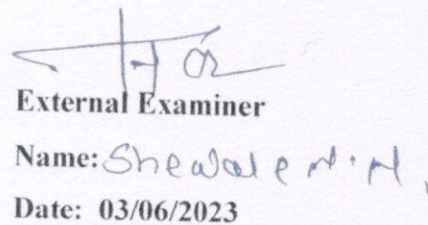 External Examiner
Name: Shewale
Date: 03/06/2023